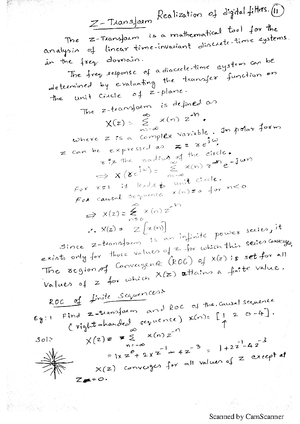 Z-Transform Realization of digital filters. 11
The Z-Transform is a mathematical tool for the
analysis of linear time-invariant discrete-time systems
in the freq domain.
The freq response of a discrete-time system can be
determined by evaluating the transfer function on
the unit circle of z-plane.
The z-transform is defined as
X(z) = ∞Σn=-∞ x(n) z⁻ⁿ.
where z is a complex variable. In polar form
z can be expressed as z = re^jω
r is the radius of the circle.
⇒ X(re^jω) = ∞Σn=-∞ x(n) r⁻ⁿ e^-jωn
For r=1 it leads unit circle.
For causal sequence x(n)=0 for n<0
⇒ X(z) = ∞Σn=0 x(n) z⁻ⁿ
∴ X(z) = Z[x(n)]
Since z-transform is an infinite power series, it
exists only for those values of z for which this series converges
The region of Convergence (ROC) of X(z) is set for all
values of z for which X(z) attains a finite value.
ROC of finite Sequences:
Eg: 1 Find z-transform and ROC of the causal sequence
(right-handed sequence) x(n) = [1 2 0 -4].
Sol: X(z) = ∞Σn=-∞ x(n) z⁻ⁿ
= 1×z⁰ + 2×z⁻¹ - 4z⁻³ = 1+2z⁻¹-4z⁻³
X(z) converges for all values of z except at
z=0.
Scanned by CamScanner